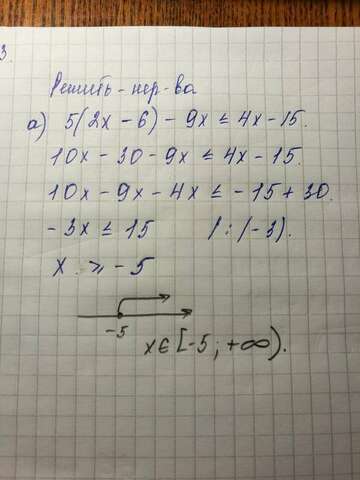 3.
Решить нер-ва
а) 5(2x - 6) - 9x ≤ 4x - 15.
10x - 30 - 9x ≤ 4x - 15.
10x - 9x - 4x ≤ -15 + 30.
-3x ≤ 15 /:(-3).
x ≥ -5
-5
x ∈ [-5; +∞).